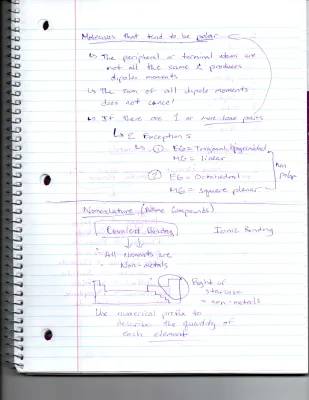 Molecules that tend to be polar
↳ The peripheral or terminal atoms are
not all the same & produces
dipole moments
↳ The sum of all dipole moments
does not cancel
↳ If there are 1 or more lone pairs
↳ 2 Exceptions
↳ ① EG = Trigonal bipyramidal
MG = linear
② EG = Octahedral
MG = square planar
Non
polar
Nomenclature (Name Compounds)
Covalent Bonding Ionic Bonding
* All elements are
Non-metals
Right of
staircase
= non-metals
Use numerical prefix to
describe the quantity of
each element